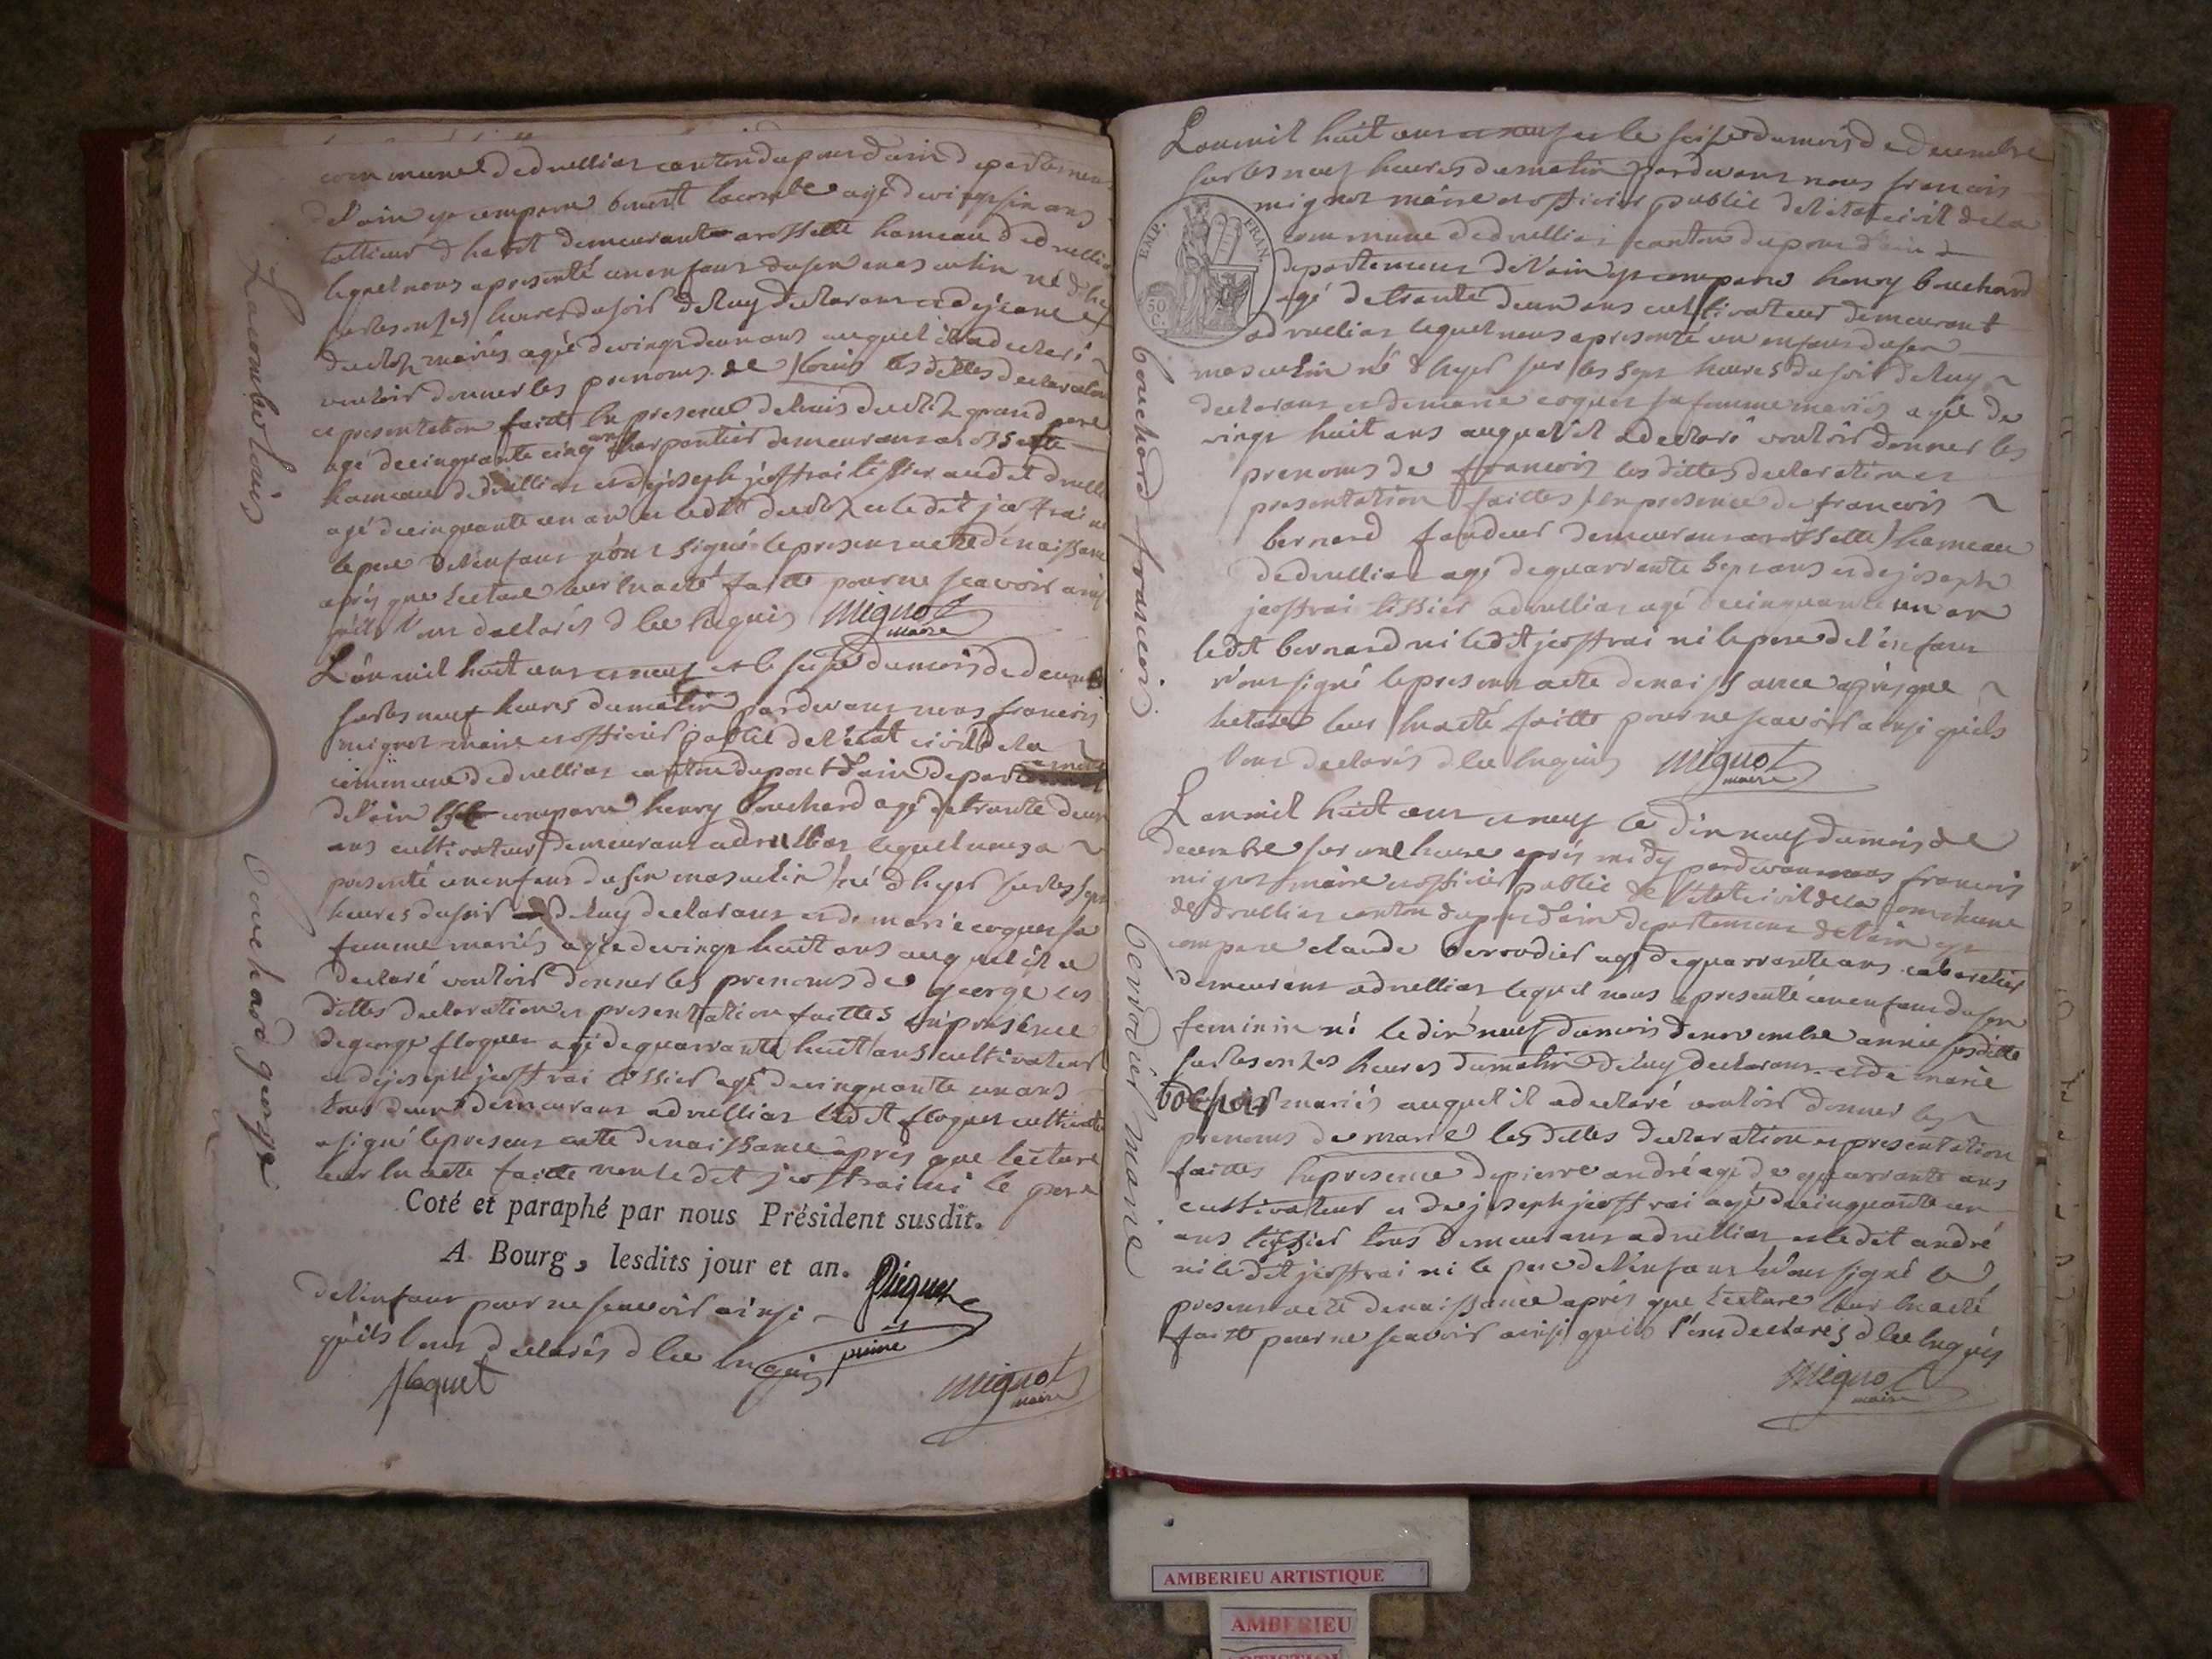 commune de druillias canton du pons dain departement
de l'ain est comparu benoit lacombe agé de vingt six ans
tallieur d'habit demeurant a rossette hameau de druillias
lequel nous a presenté un enfant du sexe masculin né d'hyer
sur les onzes heures du soir de luy declarant et de jeane
mariés agée de vingt deux ans auquel il a declaré
vouloir donner les prenoms de louis les dittes declaration
et presentation faitte en presence de louis grand pere
agé de cinquante cinq ans charpantier demeurans a rossette
hameau de druillias et de joseph jeoffrai tissier audit druillias
agé de cinquante un an et ledit et ledit jeoffrai ni
le pere de l'enfant n'ont signé le present acte de naissance
aprés que lecture leur en a eté faitte pour ne scavoir ainsi
qu'ils l'ont declarés d'ce enquis Mignot
maire
Lacombe louis
L'an mil huit cens et neuf et le seise du mois de decembre
sur les neuf heures du matin pardevant nous francois
mignot maire et officier public de l'état civil de la
commune de druillias canton du pont d'ain departement
de l'ain est comparu henry bouchard agé de trante deux
ans cultivateur demeurant a druillias lequel nous a
presenté un enfant du sexe masculin né d'hyer sur les sept
heures du soir de luy declarant et de marie coquet sa
femme mariés agée de vingt huit ans auquel il a
declaré vouloir donner les prenoms de george les
dittes declaration et presentation faittes en presence
de george floquet agé de quarrante huit ans cultivateur
et de joseph jeoffrai tissier agé de cinquante un ans
tous deux demeurans a druillias ledit floquet cultivateur
a signé le present acte de naissance aprés que lecture
leur en a eté faitte non ledit jeoffrai ni le pere
Coté et paraphé par nous Président susdit.
A Bourg, lesdits jour et an.
de l'enfant pour ne scavoir ainsi
qu'ils l'ont declarés d'ce enquis
floquet
Mignot
maire
bouchard george
L'an mil huit cens et neuf et le seise du mois de decembre
sur les neuf heures du matin pardevant nous francois
mignot maire et officier public de l'état civil de la
commune de druillias canton du pont d'ain
departement de l'ain est comparu henry bouchard
agé de trante deux ans cultivateur demeurant
a druillias lequel nous a presenté un enfant du sexe
masculin né d'hyer sur les sept heures du soir de luy
declarant et de marie coquet sa femme mariés agée de
vingt huit ans auquel il a declaré vouloir donner les
prenoms de francois les dittes declaration et
presentation faittes en presence de francois
bernard fondeur demeurans a rossette hameau
de druillias agé de quarrante sept ans et de joseph
jeoffrai tissier a druillias agé de cinquante un an
ledit bernard ni ledit jeoffrai ni le pere de l'enfant
n'ont signé le present acte de naissance aprés que
lecture leur en a eté faitte pour ne scavoir ainsi qu'ils
l'ont declarés d'ce enquis Mignot
maire
EMP. FRAN.
50 C.
bouchard francois
L'an mil huit cens et neuf le dix neuf du mois de
decembre sur une heure aprés midy pardevant nous francois
mignot maire et officier public de l'état civil de la commune
de druillias canton du pont d'ain departement de l'ain est
comparu claude berrodier agé de quarrante ans cabaretier
demeurant a druillias lequel nous a presenté un enfant du sexe
feminin né le dix neuf du mois de novembre année susditte
sur les onzes heures du matin de luy declarant et de marie
mariés auquel il a declaré vouloir donner les
prenoms de marie les dittes declaration et presentation
faittes en presence de pierre andré agé de quarrante ans
cultivateur et de joseph jeoffrai agé de cinquante un
ans tissier tous demeurans a druillias et ledit andré
ni ledit jeoffrai ni le pere de l'enfant n'ont signé le
present acte de naissance aprés que lecture leur en a eté
faitte pour ne scavoir ainsi qu'ils l'ont declarés d'ce enquis
Mignot
maire
berrodier marie
AMBERIEU ARTISTIQUE
AMBERIEU
ARTISTIQUE